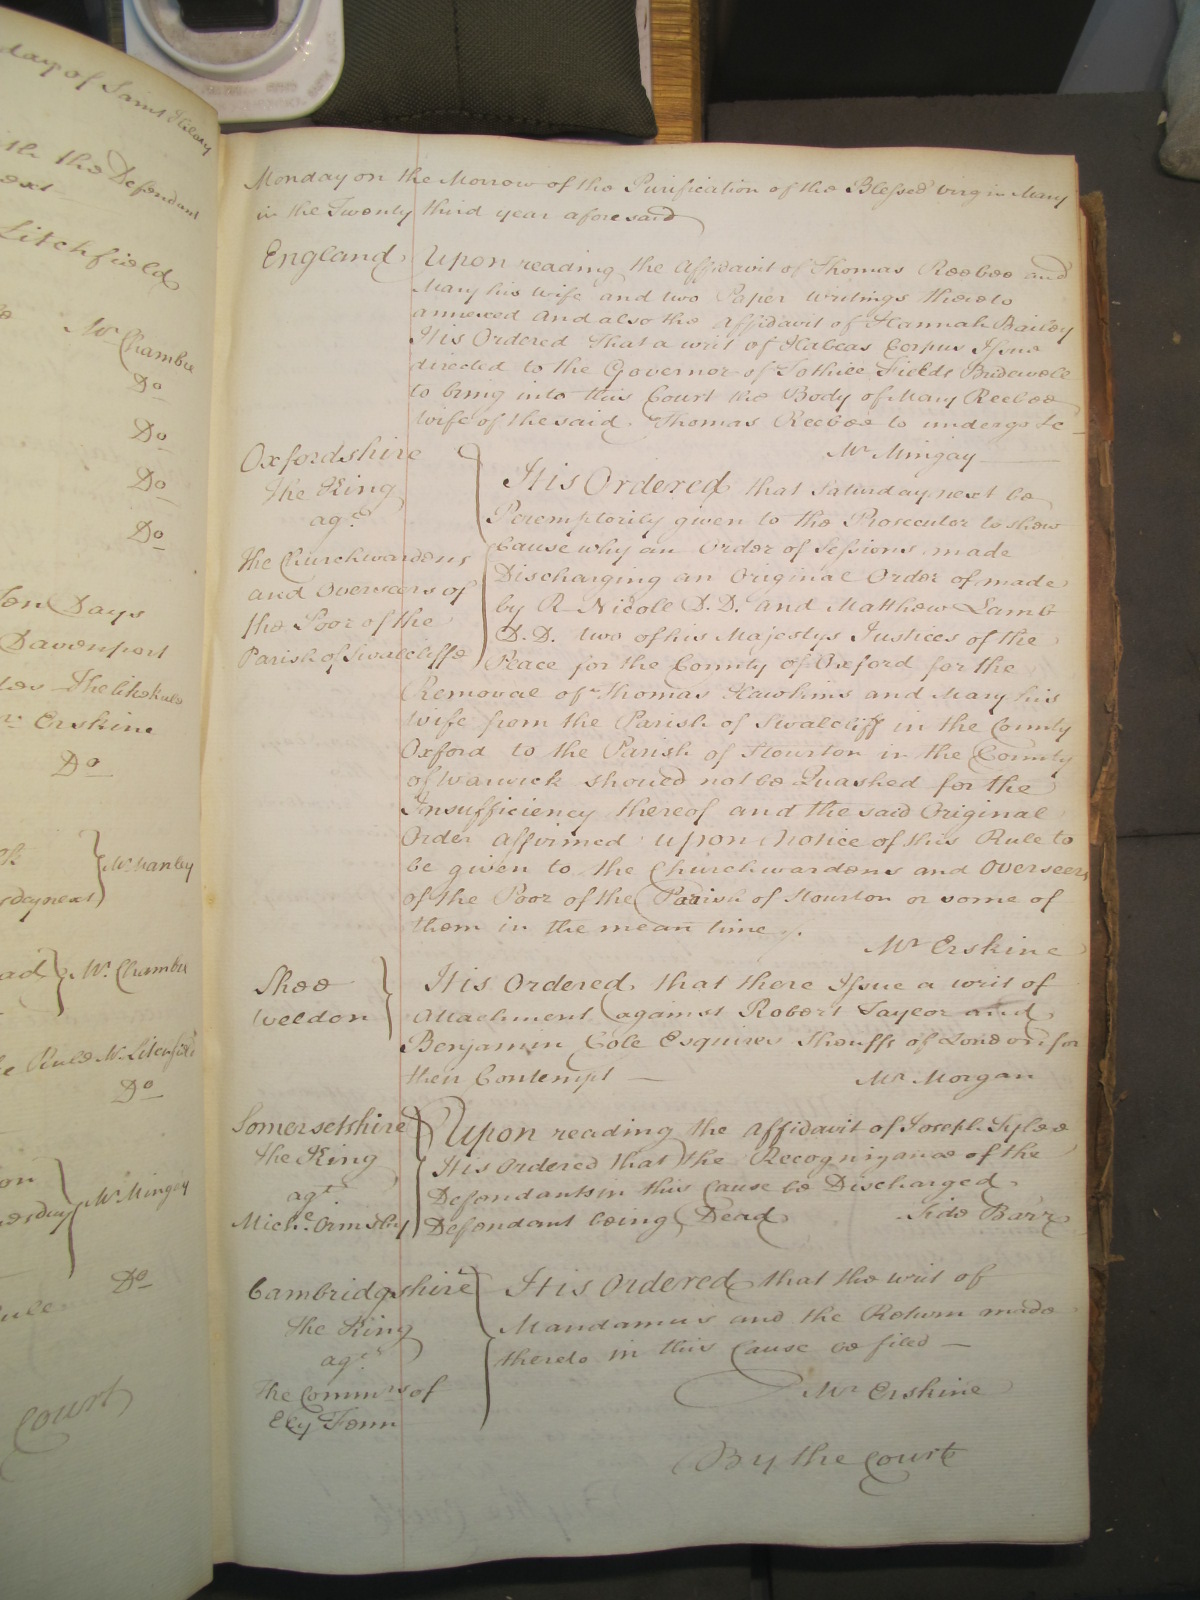 day of Saint Hilary
the Defendant
next
Litchfield
Mr Chambre
Do
Do
Do
Do
Ten Days
Davenport
The like Rule
Mr Erskine
Do
Mr Manley
Mr Chambre
Rule Mr Litchfield
Do
Mr Mingay
Do
Court
Monday on the Morrow of the Purification of the Blessed Virgin Mary
in the Twenty third year aforesaid
England Upon reading the Affidavit of Thomas Reebee and
Mary his wife and two Paper Writings thereto
annexed and also the Affidavit of Hannah Bailey
It is Ordered that a writ of Habeas Corpus Issue
directed to the Governor of Tothill Fields Bridewell
to bring into this Court the Body of Mary Reebee
wife of the said Thomas Reebee to undergo &c
Mr Mingay
Oxfordshire
The King
agt
the Churchwardens
and Overseers of
the Poor of the
Parish of Swalcliffe
It is Ordered that Saturday next be
Peremptorily given to the Prosecutor to shew
Cause why an Order of Sessions made
Discharging an Original Order of made
by R Nicoll D.D. and Matthew Lamb
D.D. two of his Majestys Justices of the
Peace for the County of Oxford for the
Removal of Thomas Hawkins and Mary his
wife from the Parish of Swalcliff in the County
Oxford to the Parish of Tourton in the County
of Warwick should not be Quashed for the
Insufficiency thereof and the said Original
Order affirmed upon Notice of this Rule to
be given to the Churchwardens and Overseers
of the Poor of the Parish of Tourton or some of
them in the mean time
Mr Erskine
Shee
Weldon
It is Ordered that there Issue a writ of
Attachment against Robert Taylor and
Benjamin Cole Esquires Sheriffs of London for
their Contempt
Mr Morgan
Somersetshire
The King
agt
Michl Ormsby
Upon reading the Affidavit of Joseph Tylee
It is Ordered that the Recognizance of the
Defendants in this Cause be Discharged
Defendant being Dead Side Barr
Cambridgshire
The King
agt
The Commrs of
Ely Fenn
It is Ordered that the writ of
Mandamus and the Return made
thereto in this Cause be filed
Mr Erskine
By the Court